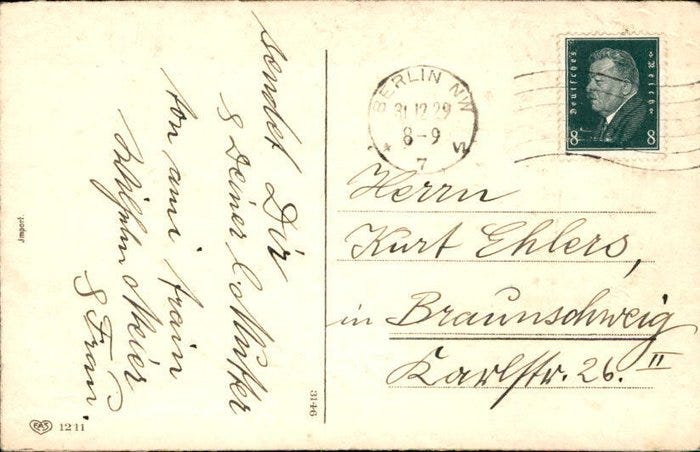 sendet Dir
& Deiner l. Mutter
ton ami train
Wilhelm Meier
& Frau.
Jmport.
EAS 1211
3146
BERLIN NW
31.12.29
8-9
7
Deutsches Reich
8 8
Herrn
Kurt Ehlers,
in Braunschweig
Karlstr. 26. II